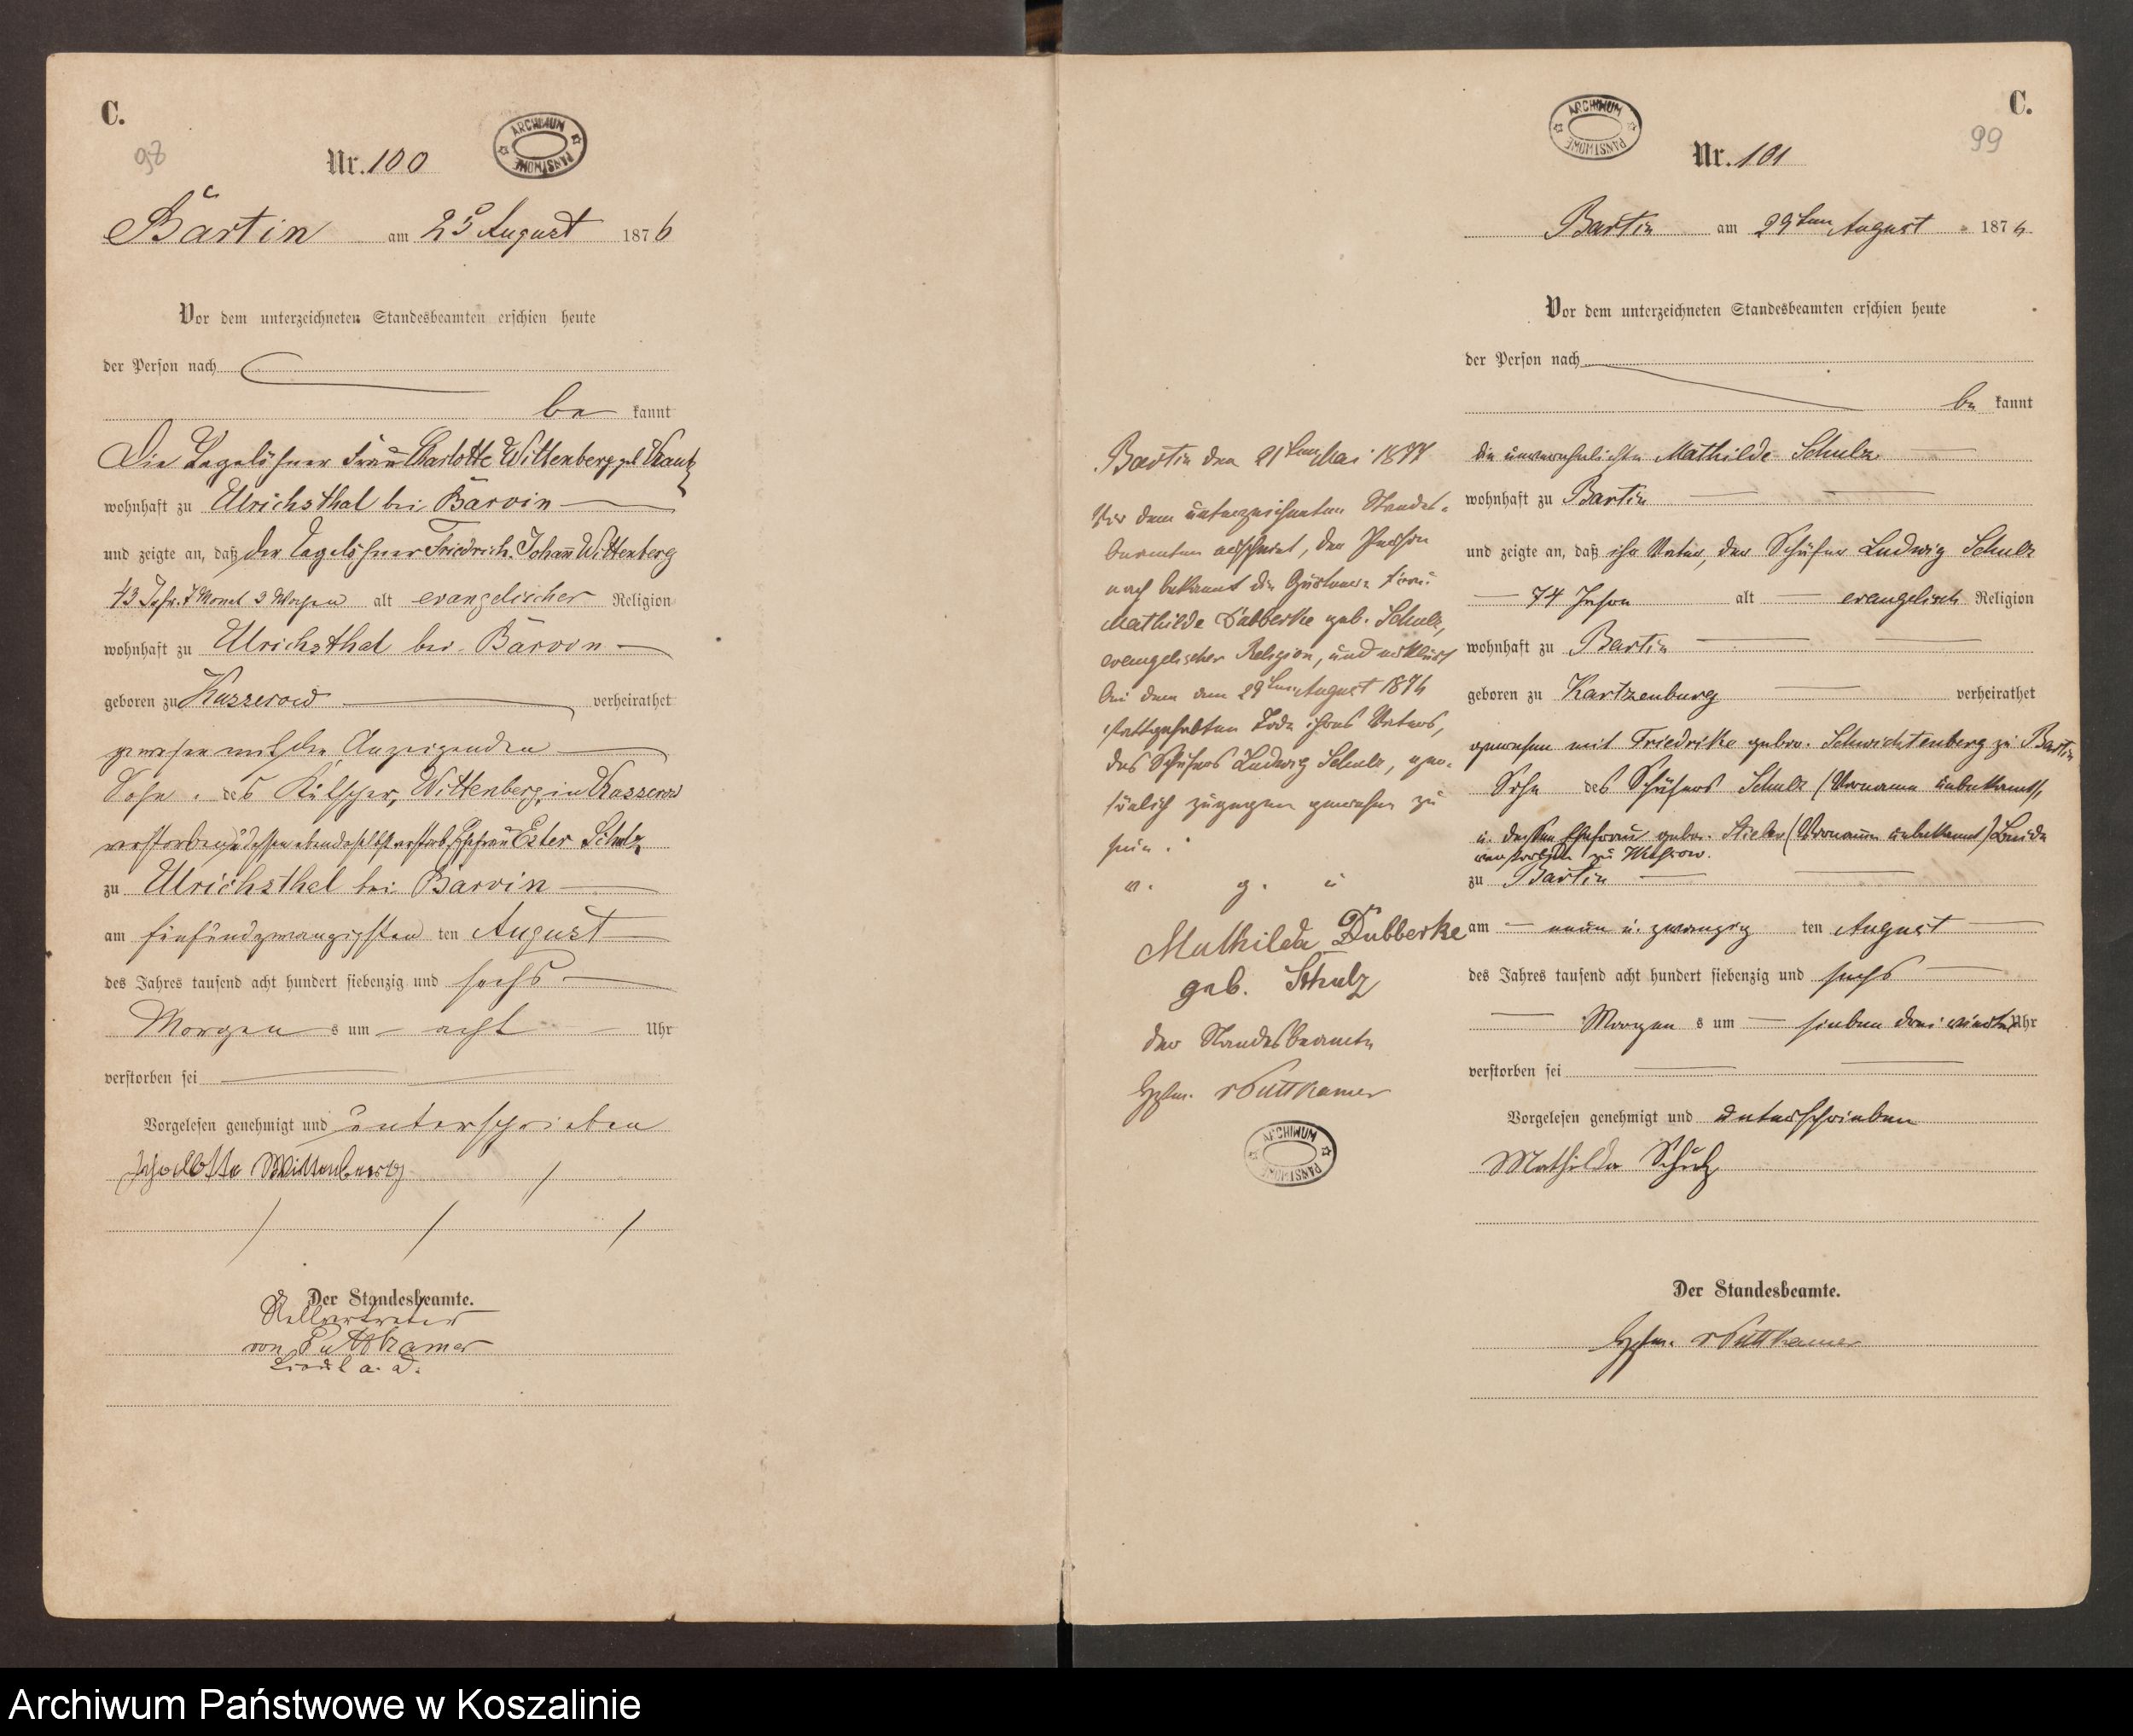 C.
98
Nr. 100
ARCHIWUM PAŃSTWOWE
Bartin am 25 August 1876
Vor dem unterzeichneten Standesbeamten erschien heute
der Person nach
be kannt
Die Tagelöhner Frau Charlotte Wittenberg gb Krantz
wohnhaft zu Ulrichsthal bei Barvin
und zeigte an, daß der Tagelöhner Friedrich Johann Wittenberg
43 Jahr. 7 Monat 3 Wochen alt evangelischer Religion
wohnhaft zu Ulrichsthal bei Barvin
geboren zu Kusserow verheirathet
gewesen mit der Anzeigenden
Sohn des Wittenberg, in Kusserow
verstorben, u dessen ebendaselbst verstorb. Ehefrau Ester Schulz
zu Ulrichsthal bei Barvin
am fünfundzwanzigsten ten August
des Jahres tausend acht hundert siebenzig und sechs
Morgen s um acht Uhr
verstorben sei
Vorgelesen genehmigt und unterschrieben
Wittenberg
Der Standesbeamte.
Stellvertreter
von Puttkamer
a. D.
C.
99
ARCHIWUM PAŃSTWOWE
Nr. 101
Bartin am 29ten August 1876
Vor dem unterzeichneten Standesbeamten erschien heute
der Person nach
be kannt
die unverehelichte Mathilde Schulz
wohnhaft zu Bartin
und zeigte an, daß ihr Vater, der Schäfer Ludwig Schulz
74 Jahre alt evangelisch Religion
wohnhaft zu Bartin
geboren zu Kartzenburg verheirathet
gewesen mit Friedrike gebor. Schwichtenberg zu Bartin
Sohn des Schäfers Schulz (Vorname unbekannt)
u. dessen Ehefrau gebor. Stieler (Vorname unbekannt) Beide
verstorben zu
zu Bartin
am neun u. zwanzig ten August
des Jahres tausend acht hundert siebenzig und sechs
Morgen s um sieben drei viertel Uhr
verstorben sei
Vorgelesen genehmigt und unterschrieben
Mathilde Schulz
Der Standesbeamte.
v Puttkamer
Bartin den 21ten Mai 1877
Vor dem unterzeichneten Standes-
beamten erscheint, der Person
nach bekannt die Frau
Mathilde Dubberke geb. Schulz,
evangelischer Religion, und erklärt
bei dem am 29ten August 1876
stattgehabten Tode ihres Vaters,
des Schäfers Ludwig Schulz, per-
sönlich zugegen gewesen zu
sein.
v. g. u
Mathilde Dubberke
geb. Schulz
der Standesbeamte
v Puttkamer
ARCHIWUM PAŃSTWOWE
Archiwum Państwowe w Koszalinie